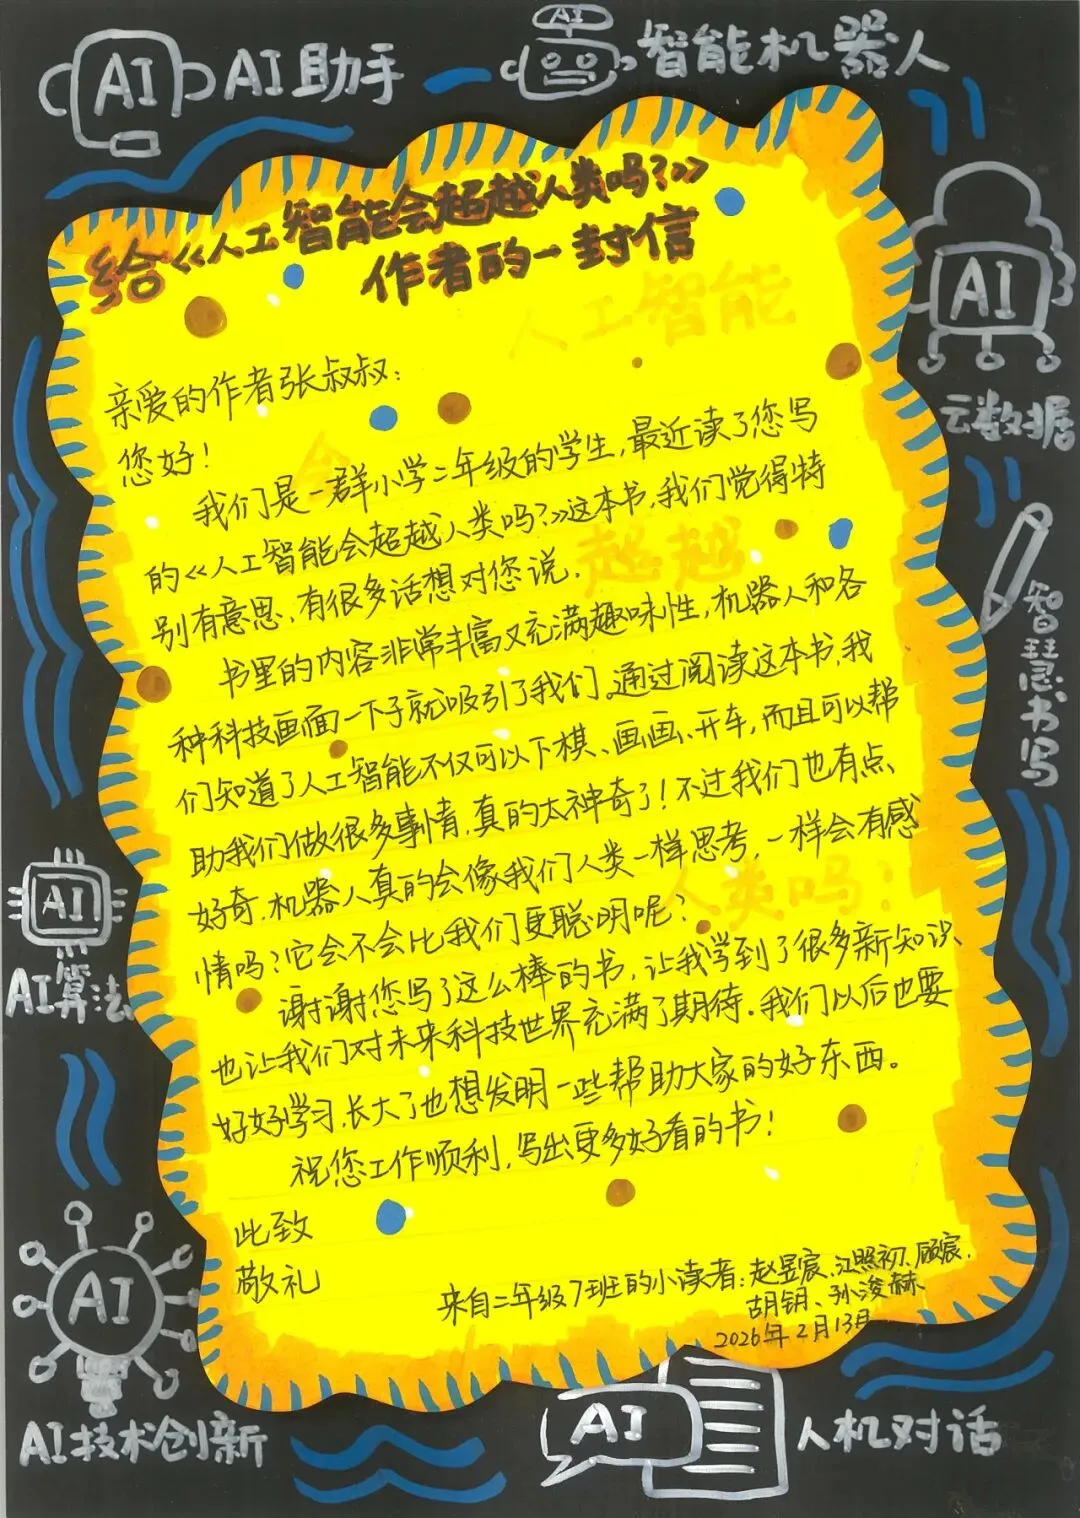 AI AI助手
AI 智能机器人
给《人工智能会超越人类吗?》
作者的一封信
人工智能
亲爱的作者张叔叔：
您好！
我们是一群小学二年级的学生,最近读了您写
的《人工智能会超越人类吗?》这本书,我们觉得特
别有意思、有很多话想对您说.
书里的内容非常丰富又充满趣味性,机器人和各
种科技画面一下子就吸引了我们。通过阅读这本书,我
们知道了人工智能不仅可以下棋、画画、开车,而且可以帮
助我们做很多事情,真的太神奇了!不过我们也有点
好奇,机器人真的会像我们人类一样思考,一样会有感
情吗?它会不会比我们更聪明呢?
谢谢您写了这么棒的书,让我学到了很多新知识、
也让我们对未来科技世界充满了期待。我们以后也要
好好学习,长大了也想发明一些帮助大家的好东西。
祝您工作顺利,写出更多好看的书!
此致
敬礼
来自二年级7班的小读者:赵昱宸、江熙初、顾宸、
胡钥、孙浚赫
2026年2月13日
会
超越
人类吗?
AI
云数据
智慧书写
AI
AI算法
AI
AI技术创新
AI
人机对话